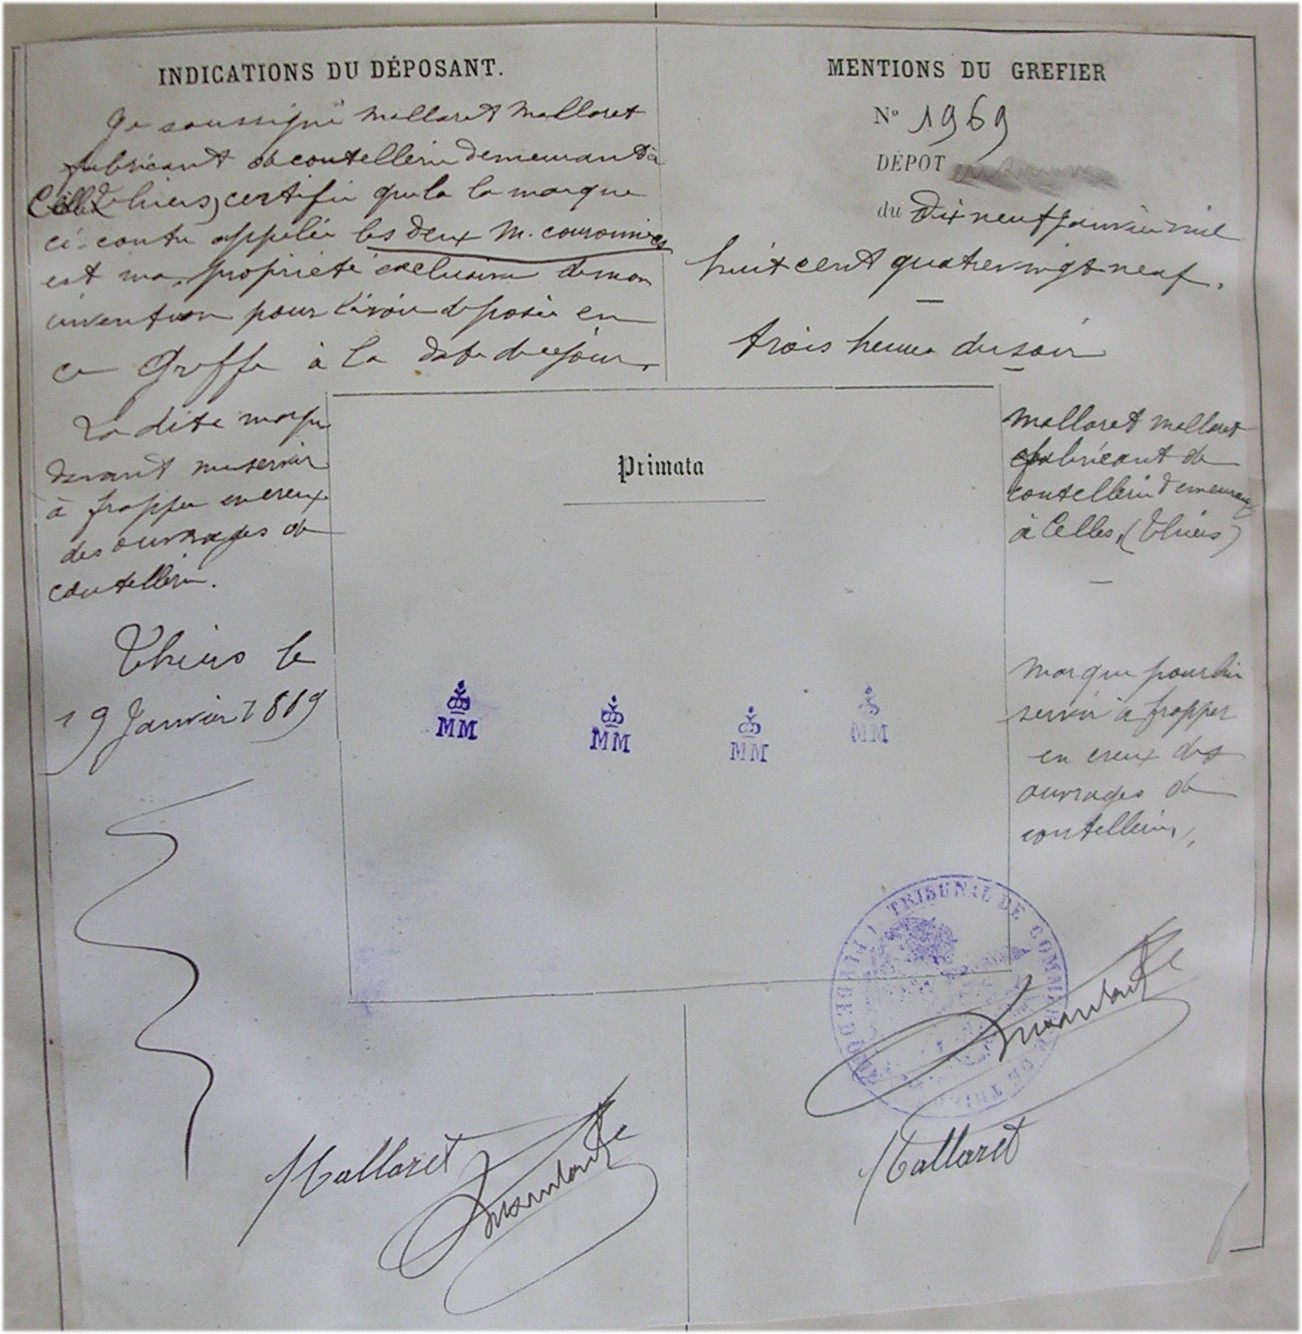 INDICATIONS DU DÉPOSANT.
Je soussigné Mallaret Mallaret
fabricant de coutellerie demeurant à
Celles Thiers, certifie que la marque
ci-contre appelée les deux M. couronnées
est ma propriété exclusive de mon
invention pour l'avoir déposée en
ce Greffe à la date de ce jour.
La dite marque
devant me servir
à frapper en creux
des ouvrages de
coutellerie.
Thiers le
19 Janvier 1889
MENTIONS DU GREFIER
Nº 1969
DÉPOT
du Dix neuf Janvier mil
huit cent quatre vingt neuf.
trois heures du soir
Mallaret Mallaret
fabricant de
coutellerie demeurant
à Celles, (Thiers)
Marque pour lui
servir à frapper
en creux des
ouvrages de
coutellerie,
Primata
MM
MM
MM
MM
TRIBUNAL DE COMMERCE DE THIERS
PUY DE DOME
Mallaret
Mallaret